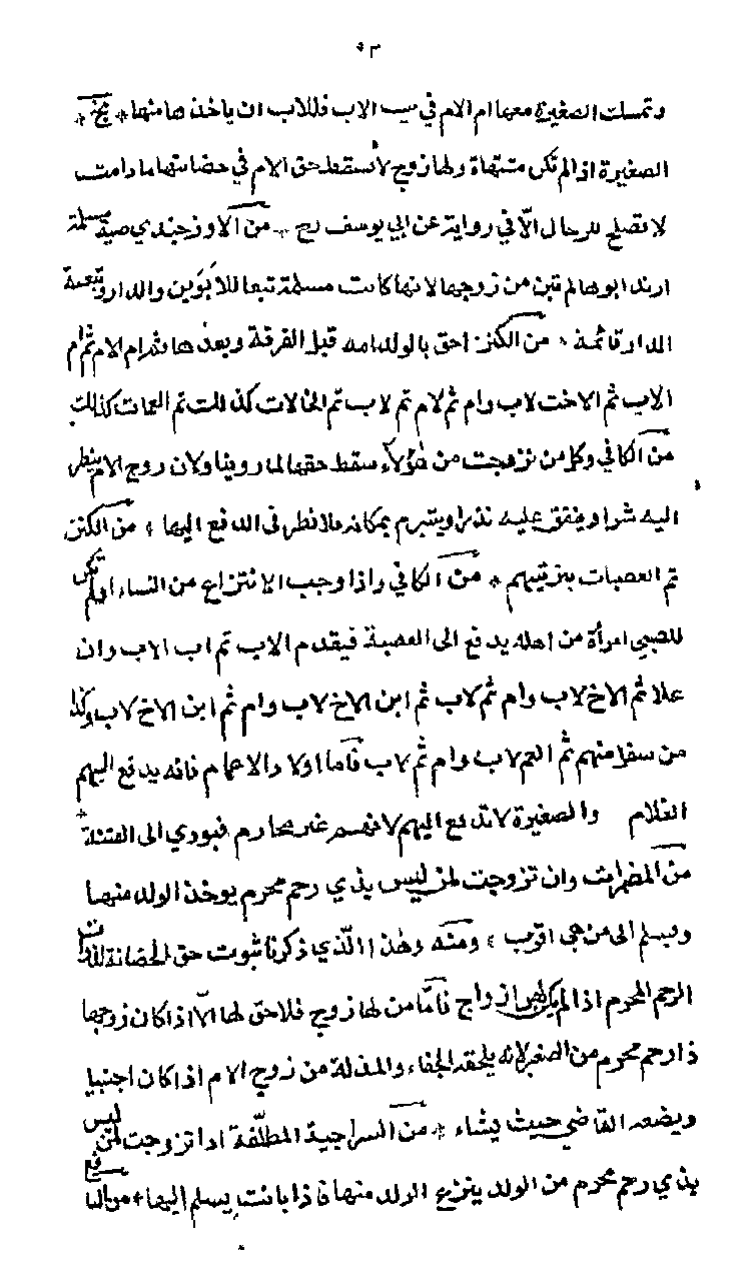 ٥٣
وتمسكت الصغيرة معها ام الام في بيت الاب فللاب ان ياخذها منها *
الصغيرة اذا لم تكن مشتهاة ولها زوج لا يسقط حق الام في حضانتها ما دامت
لا تصلح للرجال الّا في رواية عن ابي يوسف رح * من الاوزجندي صبية مسلمة
ارتد ابوها لم تبن من زوجها لانها كانت مسلمة تبعا للابوين والدار وتبعية
الدار قائمة * من الكنز احق بالولد امه قبل الفرقة وبعدها ثم ام الام ثم ام
الاب ثم الاخت لاب وام ثم لام ثم لاب ثم الخالات كذلك ثم العمات كذلك
من الكافي وكل من تزوجت من هؤلاء سقط حقها لما روينا ولان زوج الام ينظر
اليه شزرا وينفق عليه نذرا ويتبرم بمكانه فلا نظر في الدفع اليها * من الكنز
ثم العصبات بترتيبهم * من الكافي واذا وجب الانتزاع من النساء او لم تكن
للصبي امرأة من اهله يدفع الى العصبة فيقدم الاب ثم اب الاب وان
علا ثم الاخ لاب وام ثم لاب ثم ابن الاخ لاب وام ثم ابن الاخ لاب وكذا
من سفل منهم ثم العم لاب وام ثم لاب فاما اولاد الاعمام فانه يدفع اليهم
الغلام والصغيرة لا تدفع اليهم لانهم غير محارم فيودي الى الفتنة *
من المضمرات وان تزوجت لمن ليس بذي رحم محرم يوخذ الولد منها
ويسلم الى من هي اقرب * ومنه وهذا الّذي ذكرنا ثبوت حق الحضانة لذات
الرحم المحرم اذا لم يكن لهن ازواج فامّا من لها زوج فلا حق لها الّا اذا كان زوجها
ذا رحم محرم من الصغير لانه يلحقه الجفاء والمذلة من زوج الام اذا كان اجنبيا
ويضعه القاضي حيث يشاء * من السراجية المطلّقة اذا تزوجت لمن ليس
بذي رحم محرم من الولد ينزع الولد منها فاذا بانت يسلم اليها *